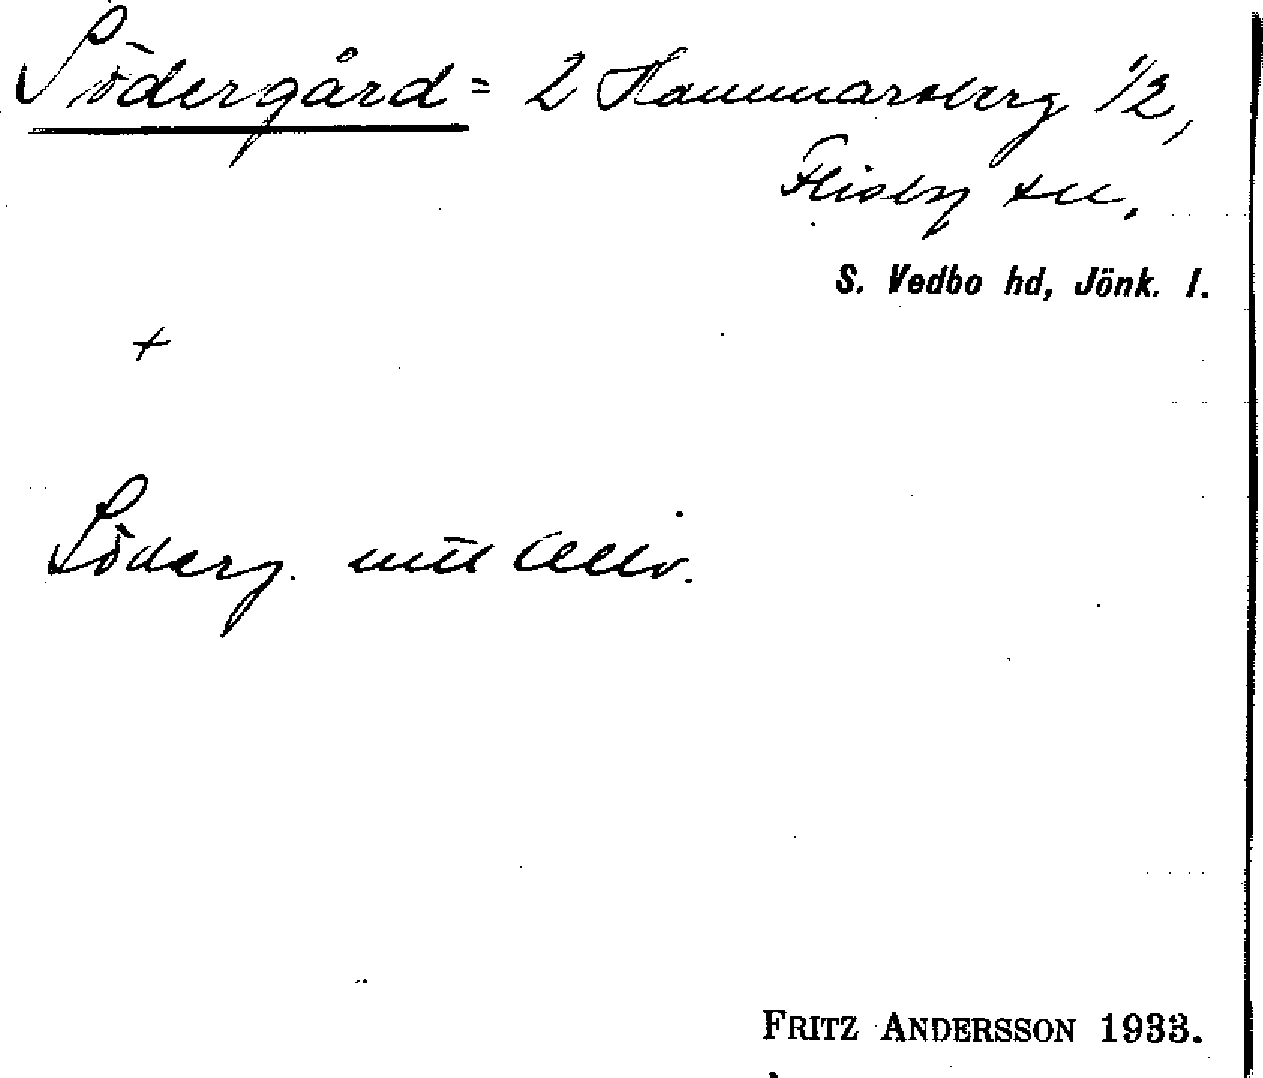 Södergård = 2 Hammarsberg 1/2,
Flisby sn.
S. Vedbo hd, Jönk. l.
+
Söderg.
FRITZ ANDERSSON 1933.